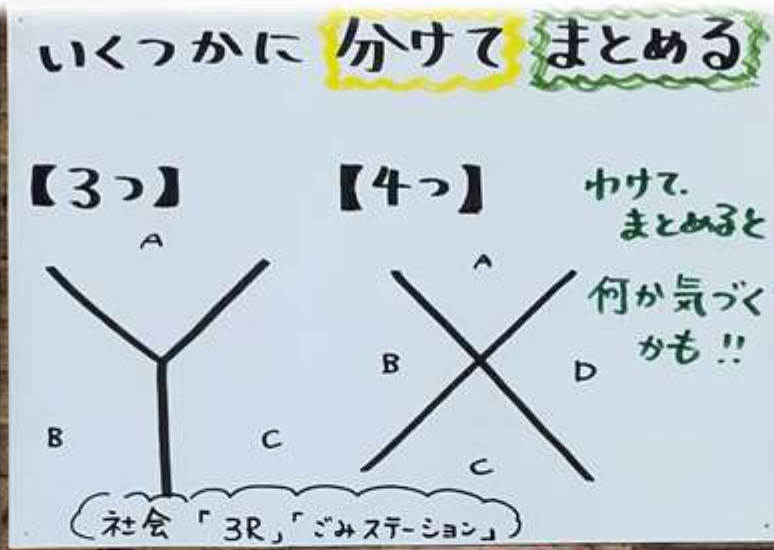 いくつかに 分けて まとめる
【3つ】
A
B
C
【4つ】
A
B
D
C
わけて、
まとめると
何か気づく
かも!!
社会 「3R」「ごみステーション」